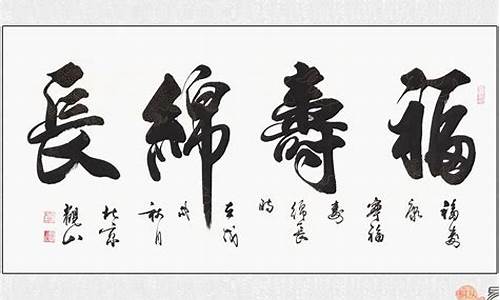 福壽綿長
福壽
康
寧福
壽
綿長
時
在戊
戌
秋月
北京
觀山